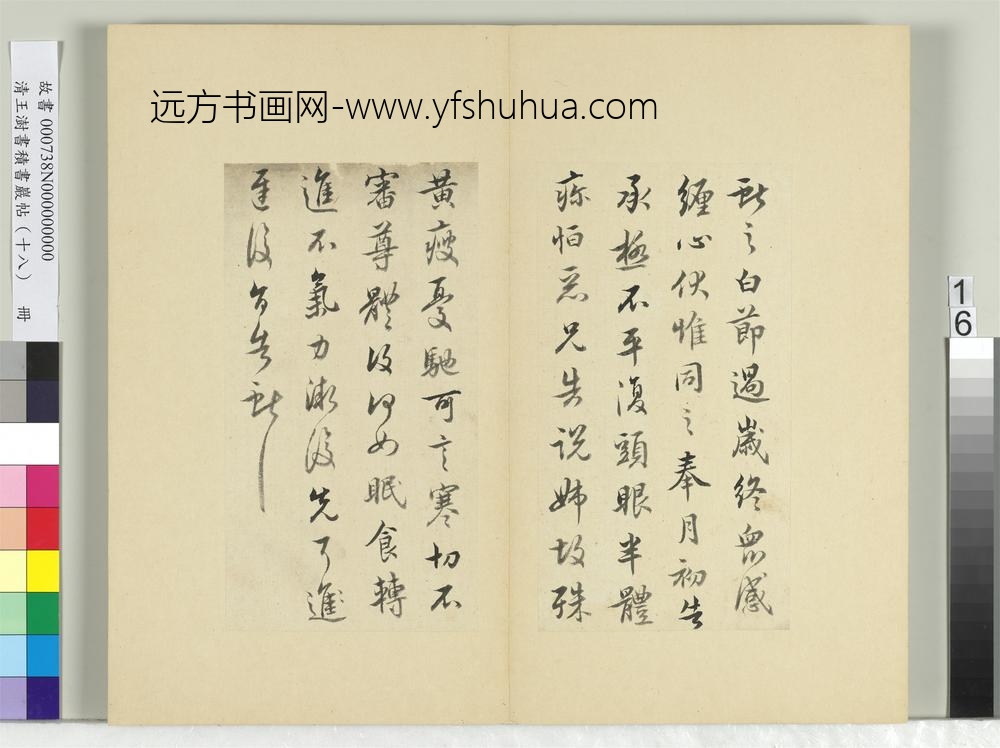 远方书画网-www.yfshuhua.com
故書 000738N000000000
清王澍書積書巖帖（十八） 冊
16
獻之白節過歲終眾感
纏心伏惟同之奉月初告
承極不平復頭眼半體
疼怕惡兄告說姊故殊
黃瘦憂馳可言寒切不
審尊體復何如眠食轉
進不氣力漸復先可進
復白告獻